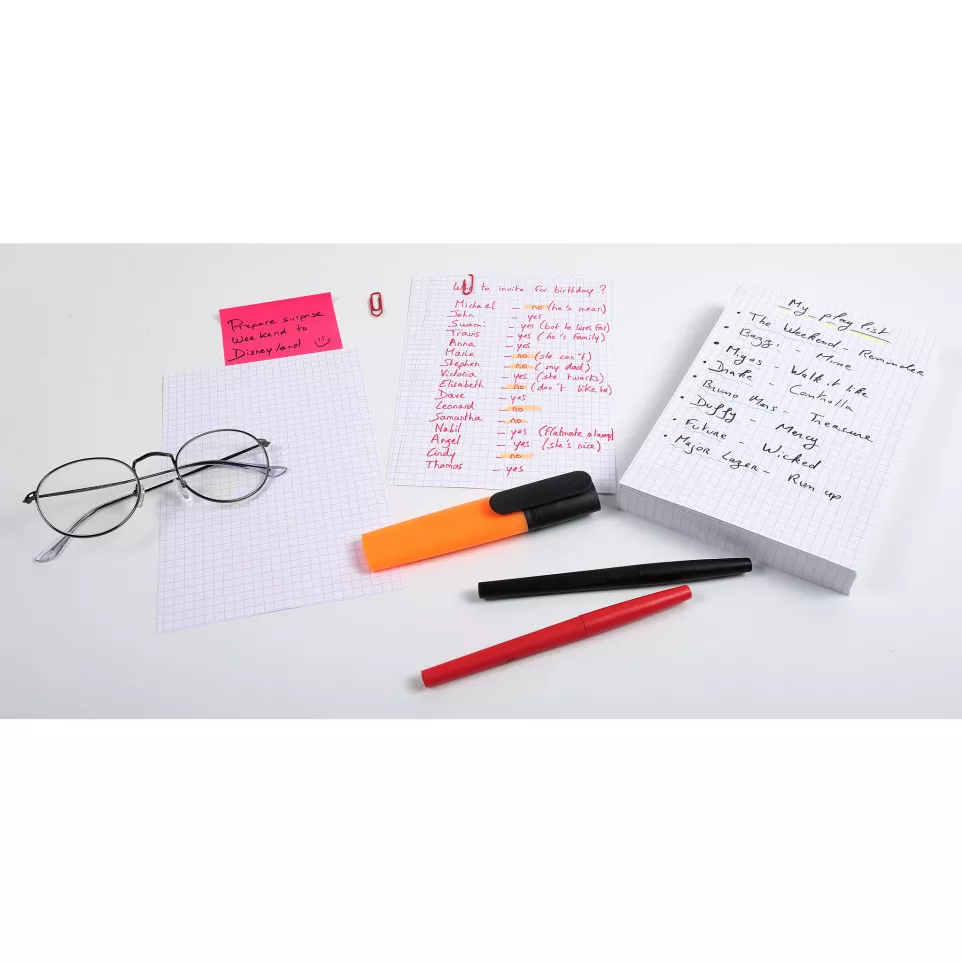 Prepare surprise
Weekend to
Disneyland
Who to invite for birthday ?
Michael – no (he's mean)
John – yes
Swami – yes (but he lives far)
Travis – yes (he's family)
Anna – yes
Marie – no (she can't)
Stephen – no (my dad)
Victoria – yes (she twerks)
Elisabeth – no (don't like her)
Dave – yes
Leonard – no
Samantha – no
Nabil – yes (flatmate
Angel – yes (she's nice)
Cindy – no
Thomas – yes
My play list
• The Weekend – Reminder
• Bazzi – Mine
• Migos – Walk it like
• Drake – Controlla
• Bruno Mars – Treasure
• Duffy – Mercy
• Future – Wicked
• Major Lazer – Run up